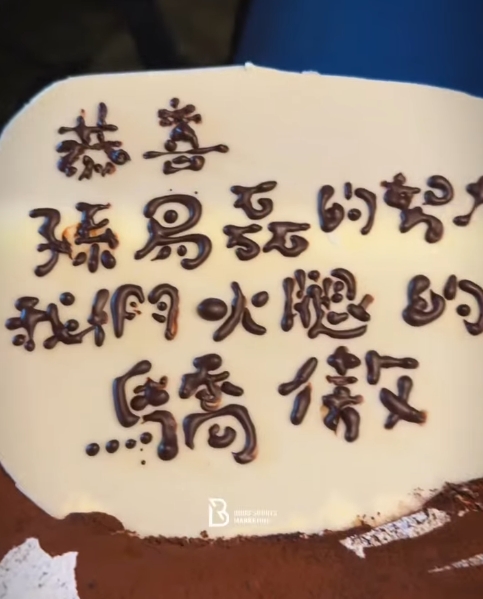 恭喜
孫易磊的努
我們火腿的
驕傲